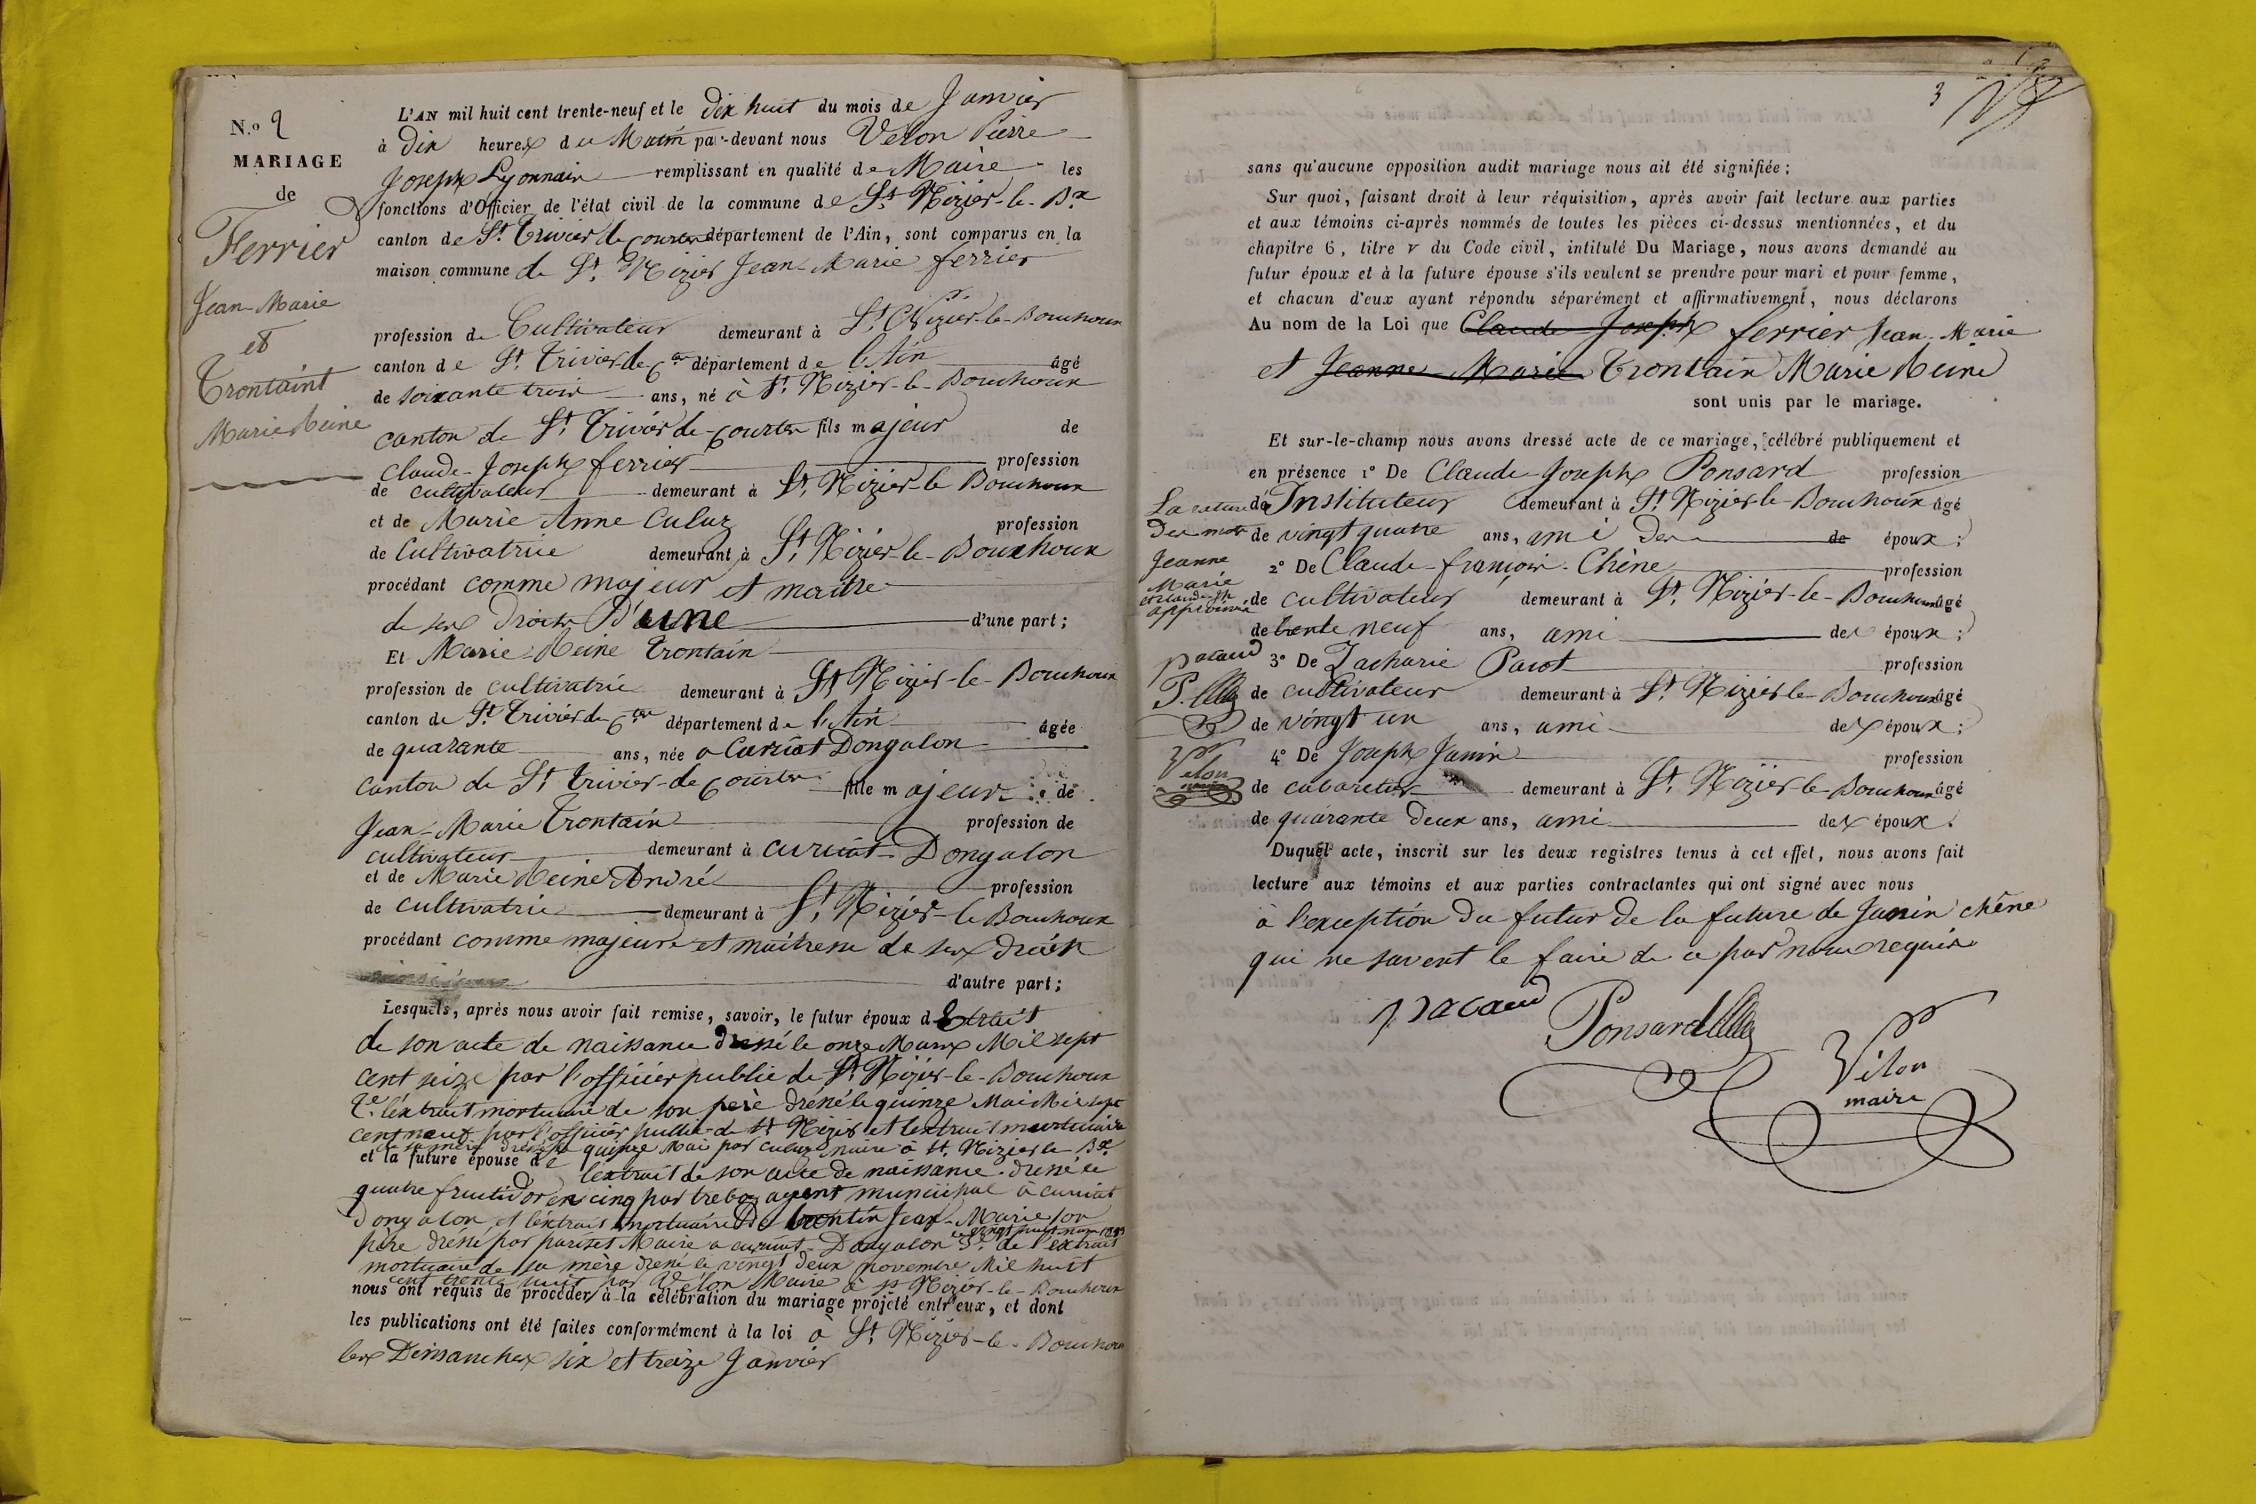 N.º 2
MARIAGE
de
Ferrier
Jean-Marie
et
Trontaint
Marie Reine
L'AN mil huit cent trente-neuf et le dix huit du mois de Janvier
à dix heures du Matin par-devant nous Velon Pierre
Joseph Lyonnair remplissant en qualité de Maire les
fonctions d'Officier de l'état civil de la commune de St Nizier-le-Bx
canton de St Trivier de Courtes département de l'Ain, sont comparus en la
maison commune de St Nizier Jean-Marie ferrier
profession de Cultivateur demeurant à St Nizier-le-Bouchoux
canton de St Trivier de Ctes département de l'Ain âgé
de soixante trois ans, né à St Nizier-le-Bouchoux
canton de St Trivier de-Courtes fils majeur de
Claude-Joseph ferrier profession
de cultivateur demeurant à St Nizier-le Bouchoux
et de Marie Anne Culuz profession
de Cultivatrice demeurant à St Nizier-le-Bouchoux
procédant comme majeur et maitre
de ses Droits D'une d'une part;
Et Marie-Reine Trontain
profession de cultivatrice demeurant à St Nizier-le-Bouchoux
canton de St Trivier de Ctes département de l'Ain âgée
de quarante ans, née a Curciat Dongalon
canton de St Trivier-de Courtes fille majeure de
Jean-Marie Trontain profession de
cultivateur demeurant à curciat-Dongalon
et de Marie Reine André profession
de cultivatrice demeurant à St Nizier-le Bouchoux
procédant comme majeure et maitresse de ses droits
d'autre part;
Lesquels, après nous avoir fait remise, savoir, le futur époux d Extrait
de son acte de naissance dressé le onze Mars Mil sept
cent seize par l'officier public de St Nizier-le-Bouchoux
2e l'extrait mortuaire de son père dressé le quinze Mai Mil sept
cent neuf par l'officier public de St Nizier et l'extrait mortuaire
de sa mère dressé le quinze Mai par Culuz Maire à St Nizier le Bx
et la future épouse de l'extrait de son acte de naissance dressé le
quatre fructidor en cinq par treboz agent municipal à curciat
Dongalon et l'extrait mortuaire De trontin Jean-Marie son
père dressé par pariset Maire a curciat-Dongalon 3e de l'extrait
mortuaire de sa mère dressé le vingt deux novembre Mil huit
cent trente huit par Velon Maire à St Nizier-le-Bouchoux
nous ont requis de procéder à la célébration du mariage projeté entr'eux, et dont
les publications ont été faites conformément à la loi à St Nizier-le-Bouchoux
les Dimanches six et treize Janvier
3
sans qu'aucune opposition audit mariage nous ait été signifiée;
Sur quoi, faisant droit à leur réquisition, après avoir fait lecture aux parties
et aux témoins ci-après nommés de toutes les pièces ci-dessus mentionnées, et du
chapitre 6, titre v du Code civil, intitulé Du Mariage, nous avons demandé au
futur époux et à la future épouse s'ils veulent se prendre pour mari et pour femme,
et chacun d'eux ayant répondu séparément et affirmativement, nous déclarons
Au nom de la Loi que Claude Joseph ferrier Jean-Marie
et Jeanne Marie Trontain Marie Reine
sont unis par le mariage.
Et sur-le-champ nous avons dressé acte de ce mariage, célébré publiquement et
en présence 1º De Claude Joseph Ponsard profession
de Instituteur demeurant à St Nizier-le-Bouchoux âgé
de vingt quatre ans, ami des de époux;
2º De Claude-françois Chêne profession
de cultivateur demeurant à St Nizier-le-Bouchoux âgé
de trente neuf ans, ami des époux;
3º De Zacharie Pacot profession
de cultivateur demeurant à St Nizier le-Bouchoux âgé
de vingt un ans, ami des époux;
4º De Joseph Janin profession
de cabaretier demeurant à St Nizier-le-Bouchoux âgé
de quarante deux ans, ami des époux.
Duquel acte, inscrit sur les deux registres tenus à cet effet, nous avons fait
lecture aux témoins et aux parties contractantes qui ont signé avec nous
à l'exception du futur de la future de Janin chêne
qui ne savent le faire de ce par nous requis
La rature
Des mots
Jeanne
Marie
et claude jh
approuvée
pacaud
P.
Velon
maire
pacaud
Ponsard
Velon
maire